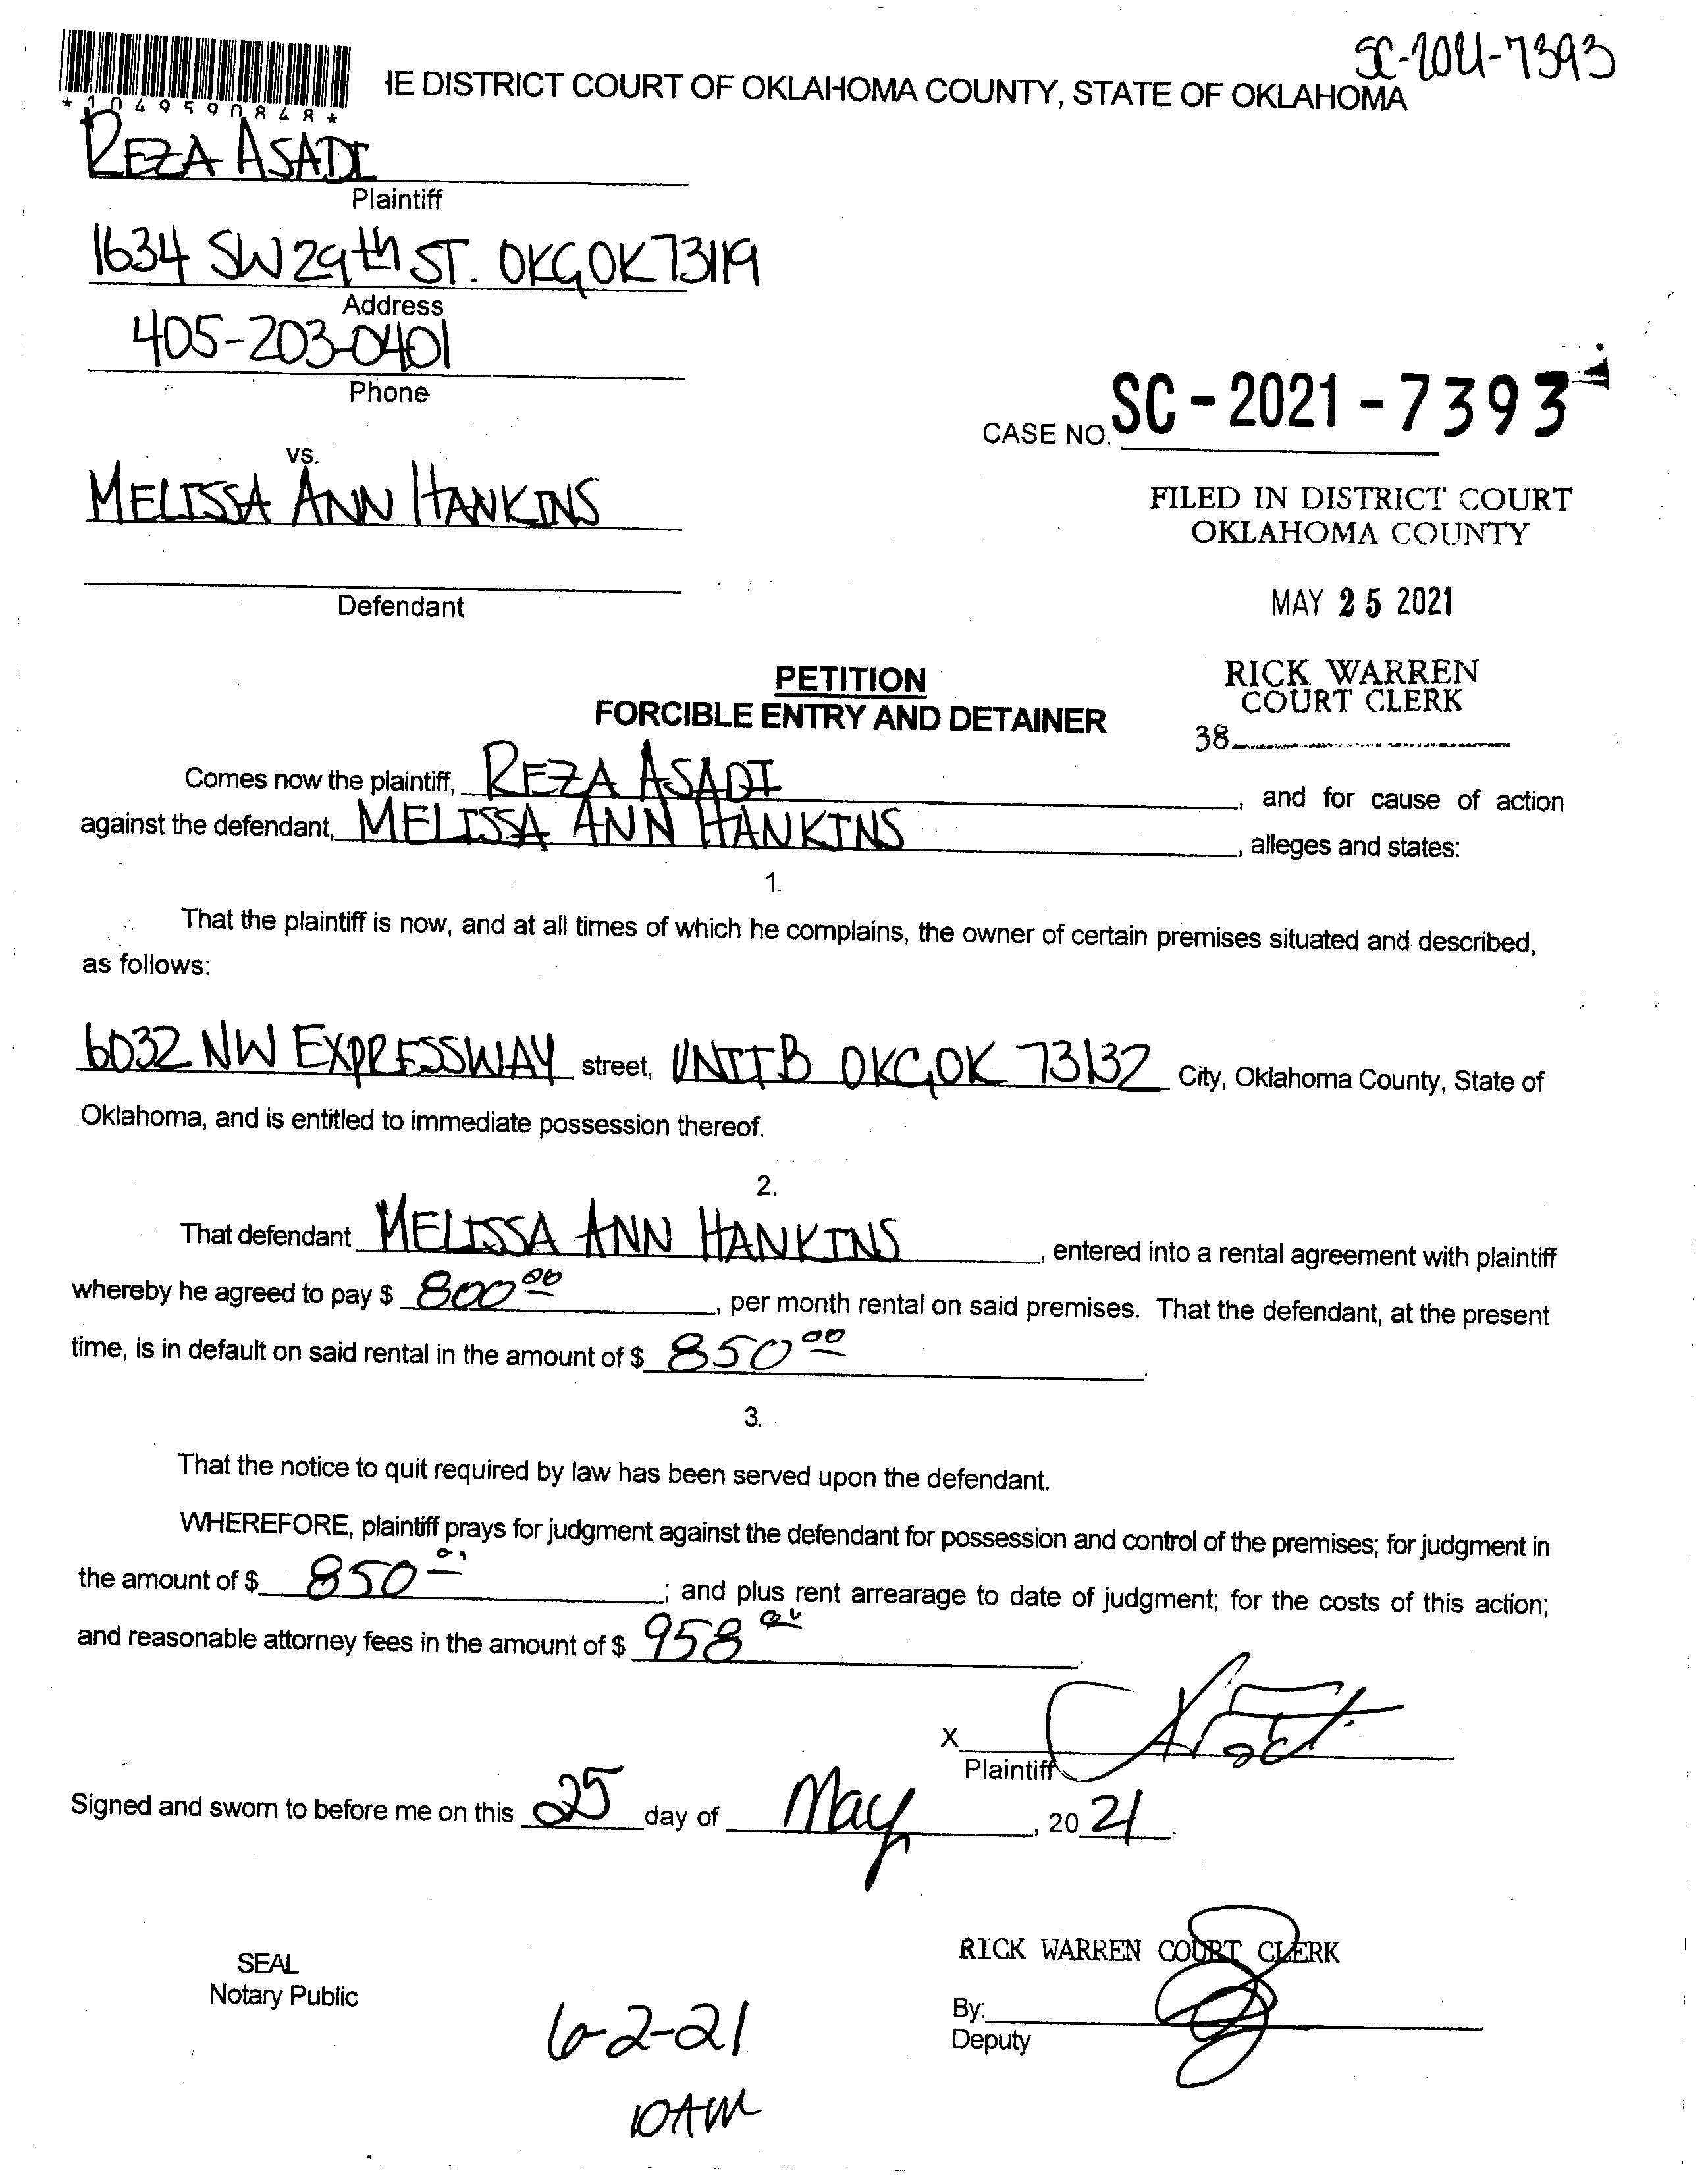 SC-2021-7393
*1049590848*
HE DISTRICT COURT OF OKLAHOMA COUNTY, STATE OF OKLAHOMA
REZA ASADI
Plaintiff
1634 SW 29th ST. OKC, OK 73119
Address
405-203-0401
Phone
CASE NO. SC-2021-7393
vs.
MELISSA ANN HANKINS
Defendant
FILED IN DISTRICT COURT
OKLAHOMA COUNTY
MAY 25 2021
RICK WARREN
COURT CLERK
38
PETITION
FORCIBLE ENTRY AND DETAINER
Comes now the plaintiff, REZA ASADI, and for cause of action
against the defendant, MELISSA ANN HANKINS, alleges and states:
1.
That the plaintiff is now, and at all times of which he complains, the owner of certain premises situated and described,
as follows:
6032 NW EXPRESSWAY street, UNIT B OKC, OK 73132 City, Oklahoma County, State of
Oklahoma, and is entitled to immediate possession thereof.
2.
That defendant MELISSA ANN HANKINS, entered into a rental agreement with plaintiff
whereby he agreed to pay $ 800 00, per month rental on said premises. That the defendant, at the present
time, is in default on said rental in the amount of $ 850 00.
3.
That the notice to quit required by law has been served upon the defendant.
WHEREFORE, plaintiff prays for judgment against the defendant for possession and control of the premises; for judgment in
the amount of $ 850 00; and plus rent arrearage to date of judgment; for the costs of this action;
and reasonable attorney fees in the amount of $ 958 00.
X
Plaintiff
Signed and sworn to before me on this 25 day of May, 20 21.
RICK WARREN COURT CLERK
SEAL
Notary Public
By:
Deputy
6-2-21
10AM